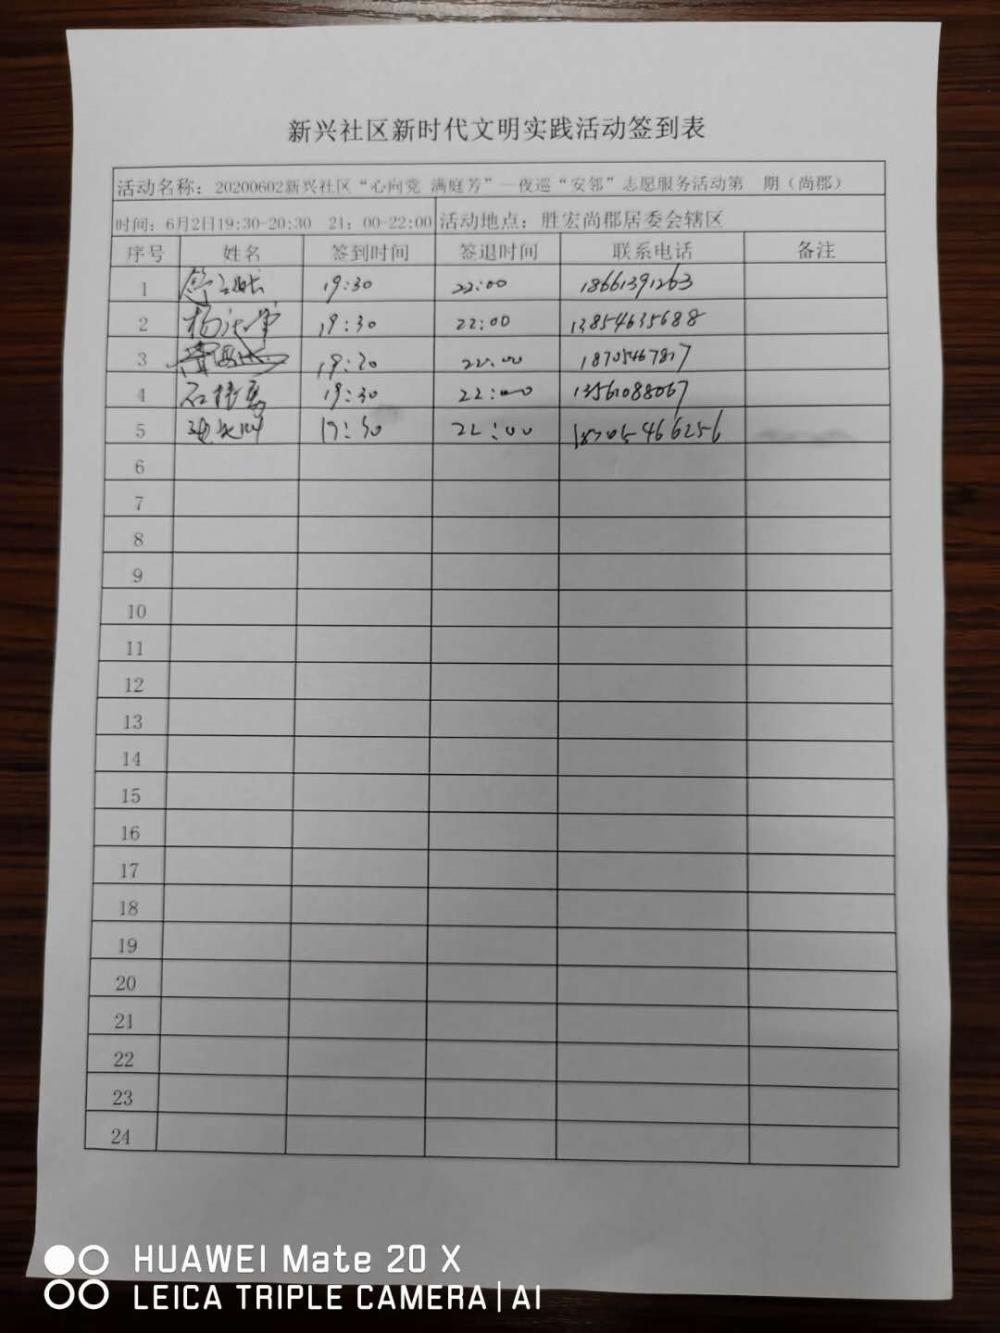 新兴社区新时代文明实践活动签到表
活动名称：20200602新兴社区“心向党 满庭芳”—夜巡“安邻”志愿服务活动第　期（尚郡）
时间：6月2日19:30-20:30　21：00-22:00 活动地点：胜宏尚郡居委会辖区
序号 姓名 签到时间 签退时间 联系电话 备注
1 19:30 22:00 18661391263
2 19:30 22:00 13854635688
3 19:30 22:00
4 19:30 22:00 13561088067
5 19:30 22:00 18705466256
6
7
8
9
10
11
12
13
14
15
16
17
18
19
20
21
22
23
24
HUAWEI Mate 20 X
LEICA TRIPLE CAMERA | AI